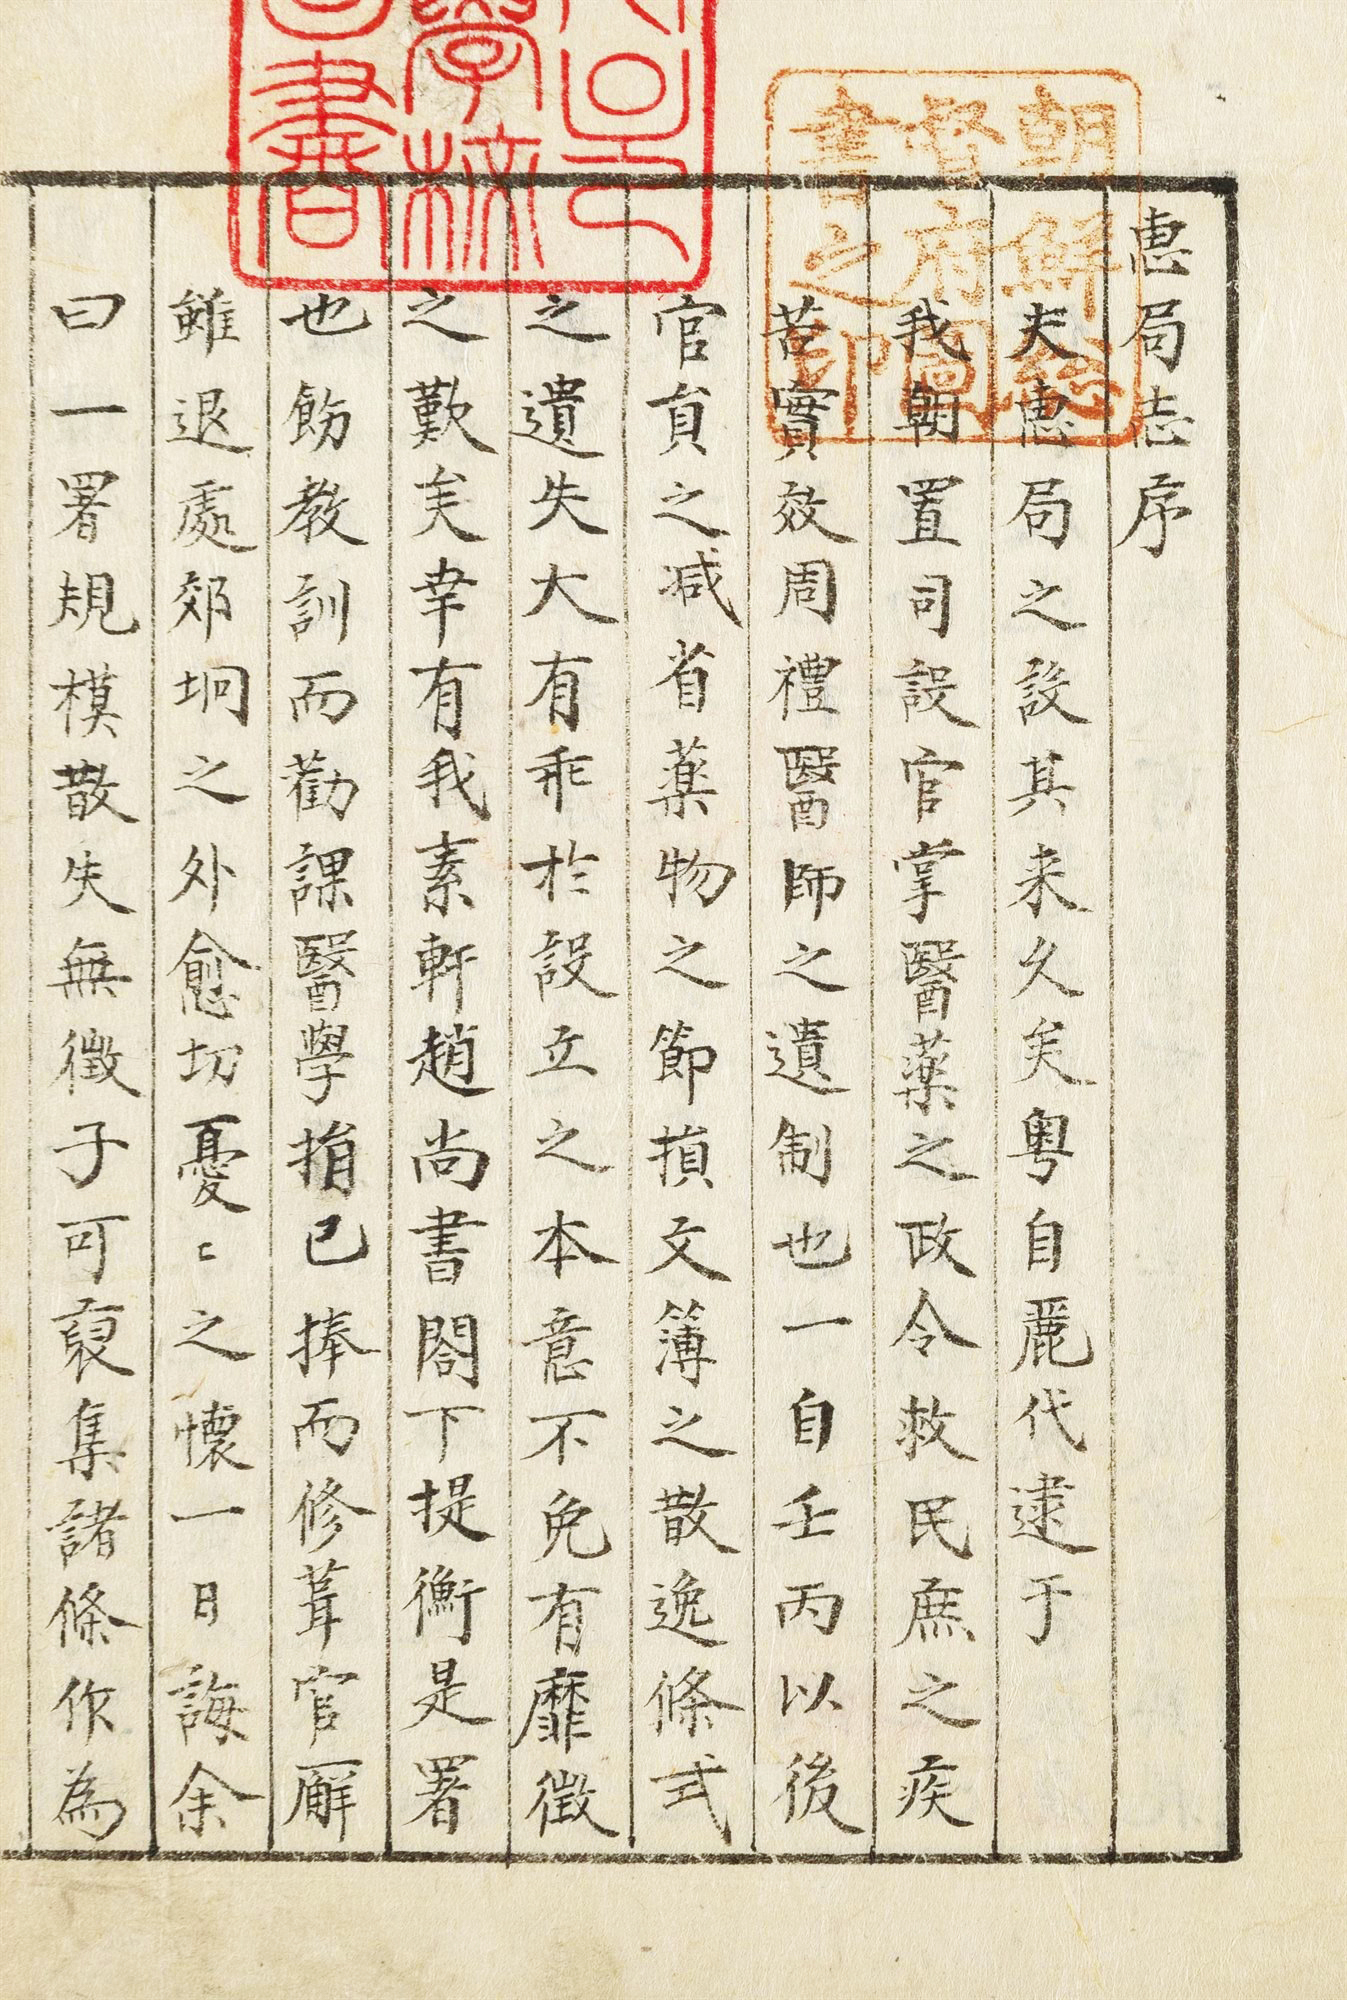 惠局志序
夫惠局之設其来久矣粤自麗代逮于
我朝置司設官掌醫藥之政令救民庶之疾
苦實效周禮醫師之遺制也一自壬丙以後
官員之减省藥物之節損文簿之散逸條式
之遺失大有乖於設立之本意不免有靡徵
之歎矣幸有我素軒趙尚書閤下提衡是署
也飭教訓而勸課醫學捐己捧而修葺官廨
雖退處郊坰之外愈切憂〻之懷一日誨余
曰一署規模散失無徵子可裒集諸條作為
朝鮮総
督府圖
書之印